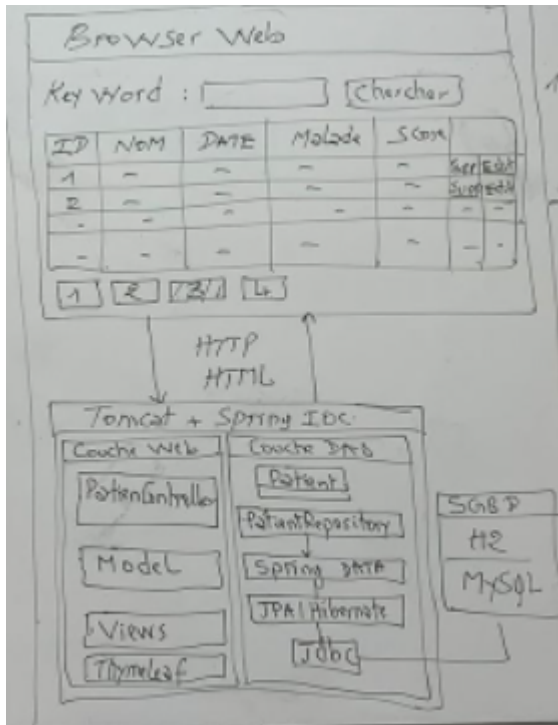 Browser Web
Key Word : Chercher
ID NOM DATE Malade Score
1 ~ ~ ~ ~ Supp Edit
2 ~ ~ ~ ~ Supp Edit
1 2 3 4
HTTP
HTML
Tomcat + Spring IOC
Couche Web
PatienController
Model
Views
Thymeleaf
Couche DAO
Patient
PatientRepository
Spring DATA
JPA/Hibernate
JDBC
SGBD
H2
MySQL